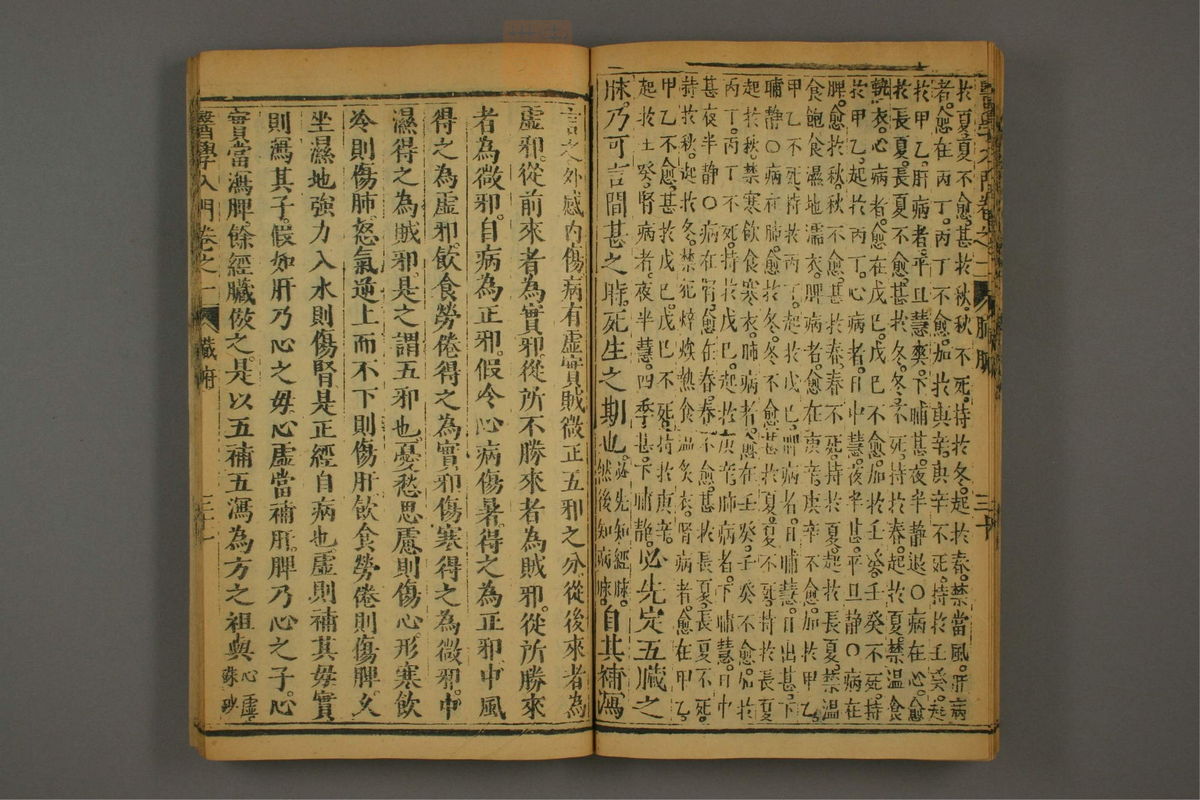 醫學入門卷之一 臟腑 三十
於夏。夏不愈。甚於秋。秋不死。持於冬。起於春。禁當風。肝病
者。愈在丙丁。丙丁不愈。加於庚辛。庚辛不死。持於壬癸。起
於甲乙。肝病者。平旦慧。下晡甚。夜半靜退○病在心。愈
於長夏。長夏不愈。甚於冬。冬不死。持於春。起於夏。禁溫食
熱衣。心病者。愈在戊巳。戊巳不愈。加於壬癸。壬癸不死。持
於甲乙。起於丙丁。心病者。日中慧。夜半甚。平旦靜○病在
脾。愈於秋。秋不愈。甚於春。春不死。持於夏。起於長夏。禁溫
食飽食濕地濡衣。脾病者。愈在庚辛。庚辛不愈。加於甲乙。
甲乙不死。持於丙丁。起於戊巳。脾病者。日晡慧。日出甚。下
晡靜○病在肺。愈於冬。冬不愈。甚於夏。夏不死。持於長夏。
起於秋。禁寒飲食寒衣。肺病者。愈在壬癸。壬癸不愈。加於
丙丁。丙丁不死。持於戊巳。起於庚辛。肺病者。下晡慧。日中
甚。夜半靜○病在腎。愈在春。春不愈。甚於長夏。長夏不死。
持於秋。起於冬。禁犯焠㶼熱食溫炙衣。腎病者。愈在甲乙。
甲乙不愈。甚於戊巳。戊巳不死。持於庚辛。
起於壬癸。腎病者。夜半慧。四季甚。下晡靜。必先定五臟之
脉。乃可言間甚之時。死生之期也。必先知經脉。然後知病脉。自其補瀉
言之。外感內傷病有虛實賊微正五邪之分。從後來者為
虛邪。從前來者為實邪。從所不勝來者為賊邪。從所勝來
者為微邪。自病為正邪。假令心病傷暑。得之為正邪。中風
得之為虛邪。飲食勞倦得之為實邪。傷寒得之為微邪。中
濕得之為賊邪。是之謂五邪也。憂愁思慮則傷心。形寒飲
冷則傷肺。怒氣逆上而不下則傷肝。飲食勞倦則傷脾。久
坐濕地強力入水則傷腎。是正經自病也。虛則補其母。實
則瀉其子。假如肝乃心之母。心虛當補肝。脾乃心之子。心
實當瀉脾。餘經臟倣之。是以五補五瀉為方之祖與心虛硃砂
醫學入門卷之一 臟腑 三十一